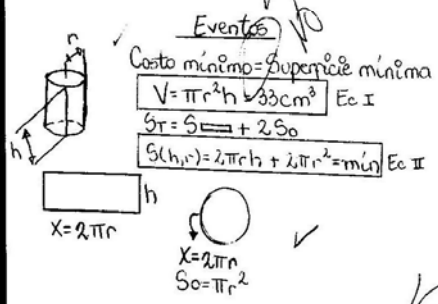 Eventos
r
Costo mínimo=Superficie mínima
V=πr²h=33cm³ Ec I
ST=S▭+2So
h
S(h,r)=2πrh+2πr²=mín Ec II
h
X=2πr
X=2πr
So=πr²